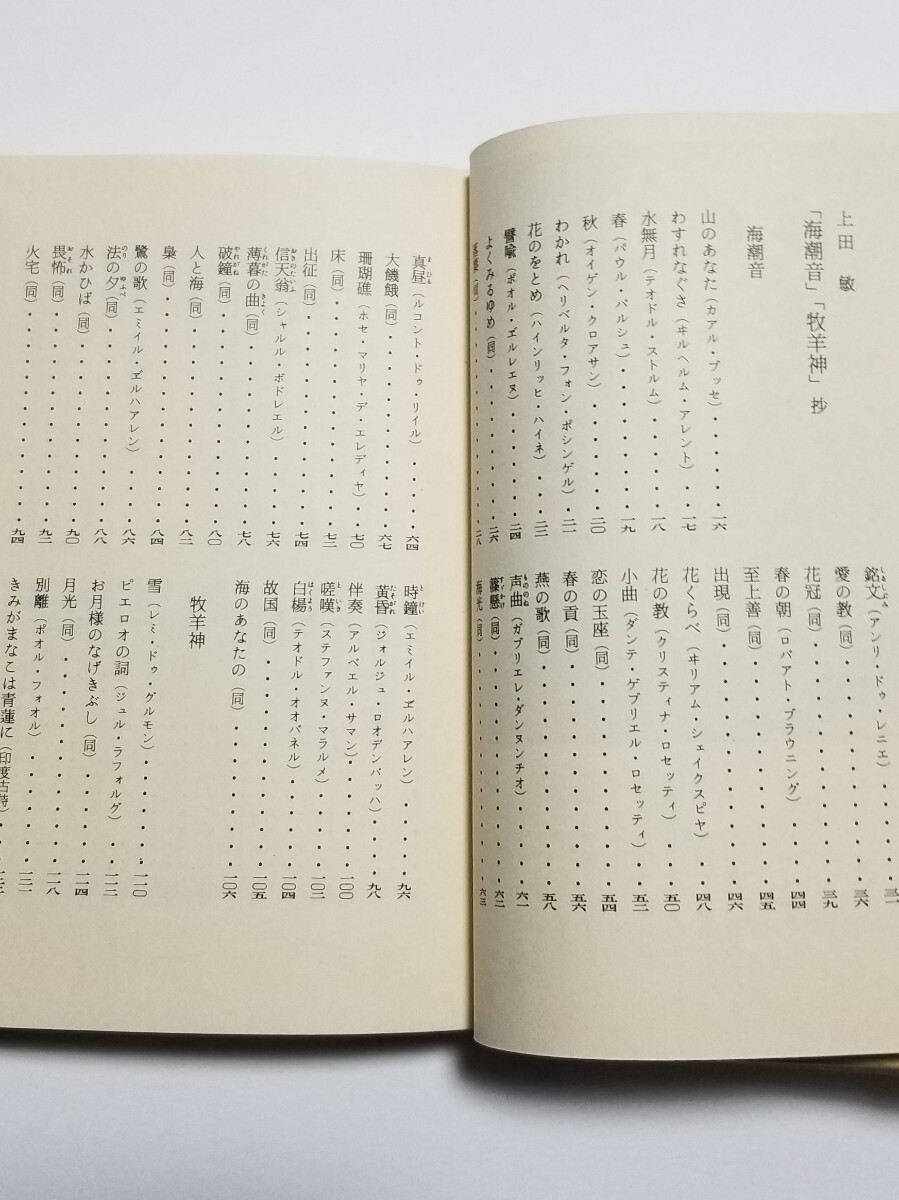 上田 敏
「海潮音」「牧羊神」抄
海潮音
山のあなた（カアル・ブッセ）・・・・・一六
わすれなぐさ（ヰルヘルム・アレント）・・一七
水無月（テオドル・ストルム）・・・・・一八
春（パウル・バルシュ）・・・・・・・一九
秋（オイゲン・クロアサン）・・・・・・二〇
わかれ（ヘリベルタ・フォン・ポシンゲル）二一
花のをとめ（ハインリッヒ・ハイネ）・・・二三
譬喩（ポオル・ヹルレエヌ）・・・・・・二四
よくみるゆめ（同）・・・・・・・・・二六
（同）・・・・・・・・・二八
銘文（アンリ・ドゥ・レニエ）・・・・・三一
愛の教（同）・・・・・・・・・・・三六
花冠（同）・・・・・・・・・・・・三九
春の朝（ロバアト・ブラウニング）・・・・四四
至上善（同）・・・・・・・・・・・四五
出現（同）・・・・・・・・・・・・四六
花くらべ（ヰリアム・シェイクスピヤ）・・四八
花の教（クリスティナ・ロセッティ）・・・五〇
小曲（ダンテ・ゲブリエル・ロセッティ）・五二
恋の玉座（同）・・・・・・・・・・五四
春の貢（同）・・・・・・・・・・・五六
燕の歌（同）・・・・・・・・・・・五八
声曲（ガブリエレ・ダンヌンチオ）・・・・六一
篠懸（同）・・・・・・・・・・・・六二
海光（同）・・・・・・・・・・・・六三
真昼（ルコント・ドゥ・リイル）・・・・六四
大饑餓（同）・・・・・・・・・・・六七
珊瑚礁（ホセ・マリヤ・デ・エレディヤ）・七〇
床（同）・・・・・・・・・・・・・七二
出征（同）・・・・・・・・・・・・七四
信天翁（シャルル・ボドレエル）・・・・七六
薄暮の曲（同）・・・・・・・・・・七八
破鐘（同）・・・・・・・・・・・・八〇
人と海（同）・・・・・・・・・・・八二
梟（同）・・・・・・・・・・・・・八四
鷺の歌（エミイル・ヹルハアレン）・・・八六
法の夕（同）・・・・・・・・・・・八八
水かひば（同）・・・・・・・・・・九〇
畏怖（同）・・・・・・・・・・・・九二
火宅（同）・・・・・・・・・・・・九四
時鐘（エミイル・ヹルハアレン）・・・・九六
黄昏（ジォルジュ・ロオデンバッハ）・・・九八
伴奏（アルベエル・サマン）・・・・・一〇〇
嗟嘆（ステファンヌ・マラルメ）・・・・一〇二
白楊（テオドル・オオバネル）・・・・・一〇四
故国（同）・・・・・・・・・・・一〇五
海のあなたの（同）・・・・・・・・一〇六
牧羊神
雪（レミ・ドゥ・グルモン）・・・・・一一〇
ピエロオの詞（ジュル・ラフォルグ）・・一一三
お月様のなげきぶし（同）・・・・・・一一四
月光（同）・・・・・・・・・・・一一八
別離（ポオル・フォオル）・・・・・・一二一
きみがまなこは青蓮に（印度古詩）・・・